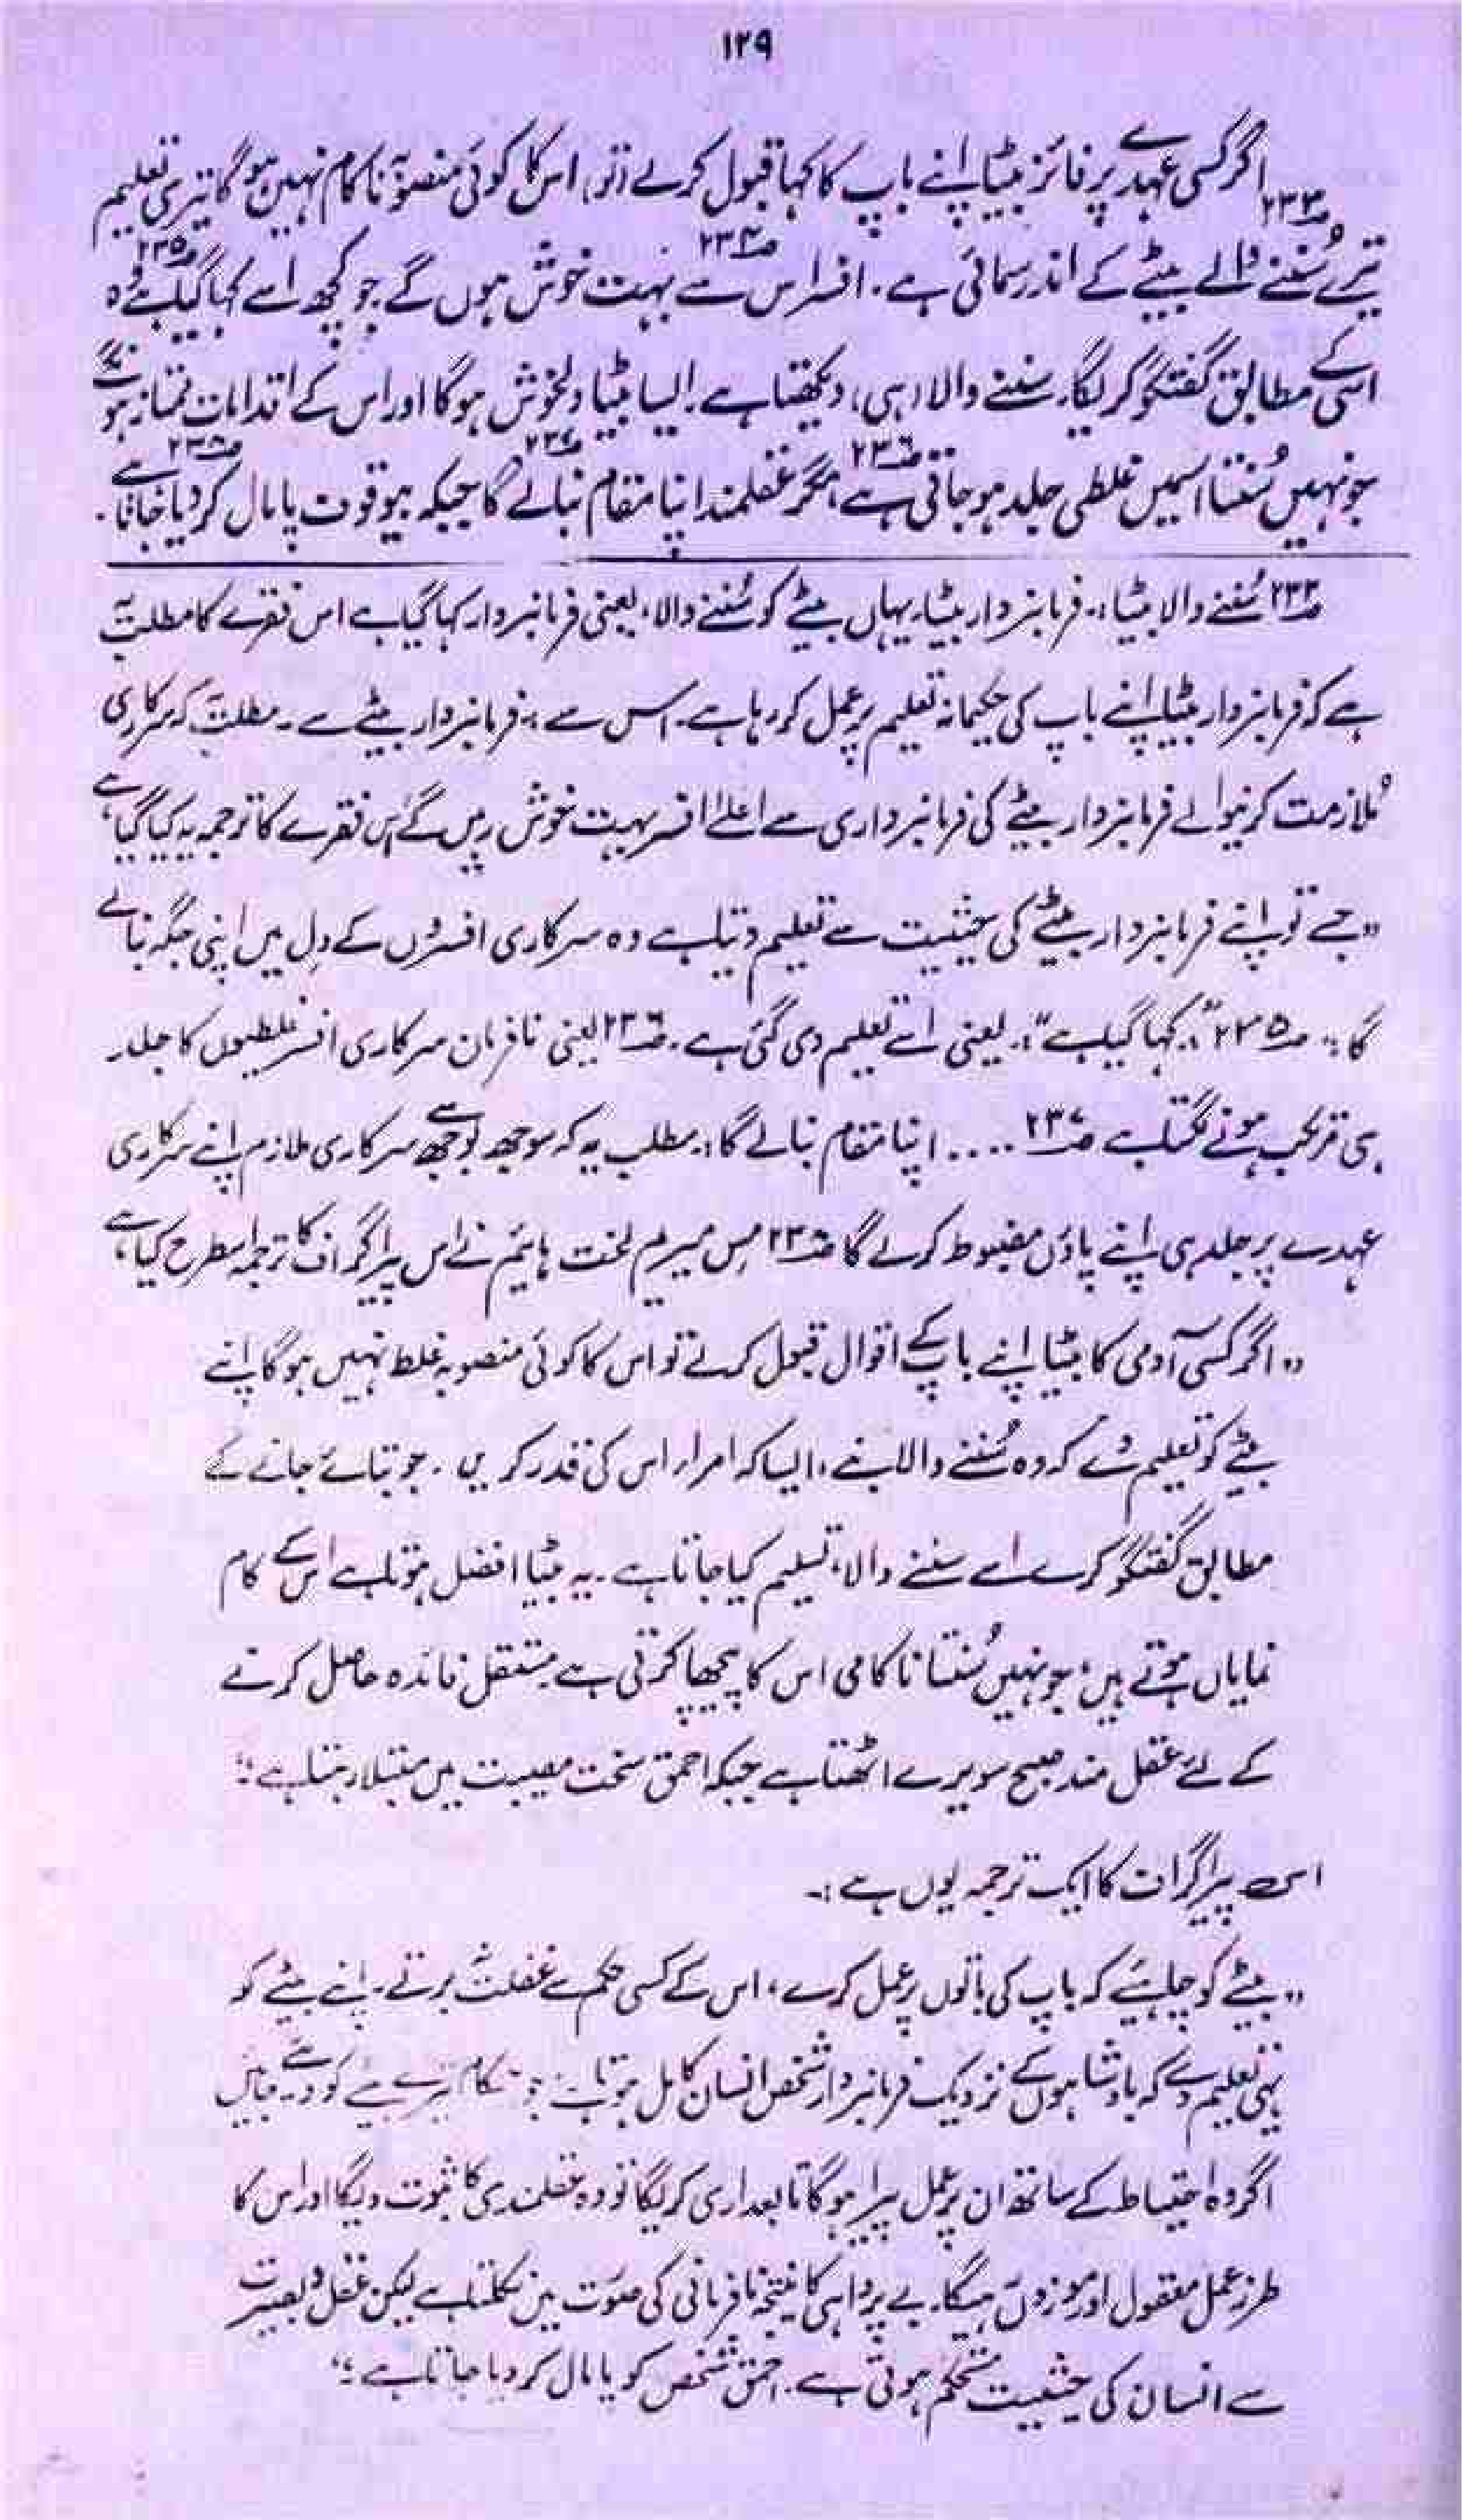 ۱۲۹
اگر کسی عہدے پر فائز بیٹا اپنے باپ کا کہا قبول کرلے (تو) اس کا کوئی منصوبہ ناکام نہیں ہوگا تیری تعلیم
۲۳۳ ۲۳۴ ۲۳۵
تیرے سُننے والے بیٹے کے اندر سمائی ہے۔ افسر اس سے بہت خوش ہوں گے جو کچھ اسے کہا گیا ہے وہ
اسی کے مطابق گفتگو کریگا۔ سننے والا (ہی) دیکھتا ہے۔ ایسا بیٹا دلخوش ہوگا اور اس کے اقدامات ممتاز ہونگے
۲۳۶ ۲۳۷ ۲۳۸
جو نہیں سُنتا اسمیں غلطی جلد ہوجاتی ہے مگر عقلمند اپنا مقام بنالے گا جبکہ بیوقوف پامال کردیا جاتا ہے۔
۲۳۳ سُننے والا بیٹا:۔ فرمانبردار بیٹا۔ یہاں بیٹے کو سُننے والا، یعنی فرمانبردار کہا گیا ہے اس فقرے کا مطلب یہ
ہے کہ فرمانبردار بیٹا اپنے باپ کی حکیمانہ تعلیم پر عمل کر رہا ہے۔ اس سے:۔ فرمانبردار بیٹے سے۔ مطلب یہ کہ سرکاری
مُلازمت کرنیوالے فرمانبردار بیٹے کی فرمانبرداری سے اعلیٰ افسر بہت خوش رہیں گے اس فقرے کا ترجمہ یہ کیا گیا ہے
”جسے تو اپنے فرمانبردار بیٹے کی حیثیت سے تعلیم دیتا ہے وہ سرکاری افسروں کے دل میں اپنی جگہ بنالے
گا“۔ ۲۳۵ ”کہا گیا ہے“:۔ یعنی اسے تعلیم دی گئی ہے۔ ۲۳۶ یعنی نافرمان سرکاری افسر غلطیوں کا جلد
ہی مرتکب ہونے لگتا ہے ۲۳۷ .... اپنا مقام بنالے گا:۔ مطلب یہ کہ سوجھ بوجھ سے سرکاری ملازم اپنے سرکاری
عہدے پر جلد ہی اپنے پاؤں مضبوط کرلے گا ۲۳۸ مس میریم لخت ہائیم نے اس پیراگراف کا ترجمہ اسطرح کیا ہے
”اگر کسی آدمی کا بیٹا اپنے باپ کے اقوال قبول کرے تو اس کا کوئی منصوبہ غلط نہیں ہوگا اپنے
بیٹے کو تعلیم دے کہ وہ سُننے والا بنے، ایسا کہ امراء اس کی قدر کریں۔ جو بتائے جانے کے
مطابق گفتگو کرے اسے سننے والا، تسلیم کیا جاتا ہے۔ یہ بیٹا افضل ہوتا ہے اس کے کام
نمایاں ہوتے ہیں؛ جو نہیں سُنتا ناکامی اس کا پیچھا کرتی ہے مستقل فائدہ حاصل کرنے
کے لئے عقل مند صبح سویرے اٹھتا ہے جبکہ احمق سخت مصیبت میں مبتلا رہتا ہے“۔
اس پیراگراف کا ایک ترجمہ یوں ہے:۔
”بیٹے کو چاہیئے کہ باپ کی باتوں پر عمل کرے، اس کے کسی حکم سے غفلت نہ برتے۔ اپنے بیٹے کو
یہی تعلیم دے کہ بادشاہوں کے نزدیک فرمانبردار شخص انسان کامل ہوتا ہے جو کام تیرے بیٹے کو دیئے جائیں
اگر وہ احتیاط کے ساتھ ان پر عمل پیرا ہوگا تابعداری کریگا تو وہ عقلمندی کا ثبوت دیگا اور اس کا
طرز عمل معقول اور موزوں ہیگا۔ بے پرواہی کا نتیجہ نافرمانی کی صورت میں نکلتا ہے لیکن عقل و بصیرت
سے انسان کی حیثیت مستحکم ہوتی ہے۔ احمق شخص کو پامال کردیا جاتا ہے“۔